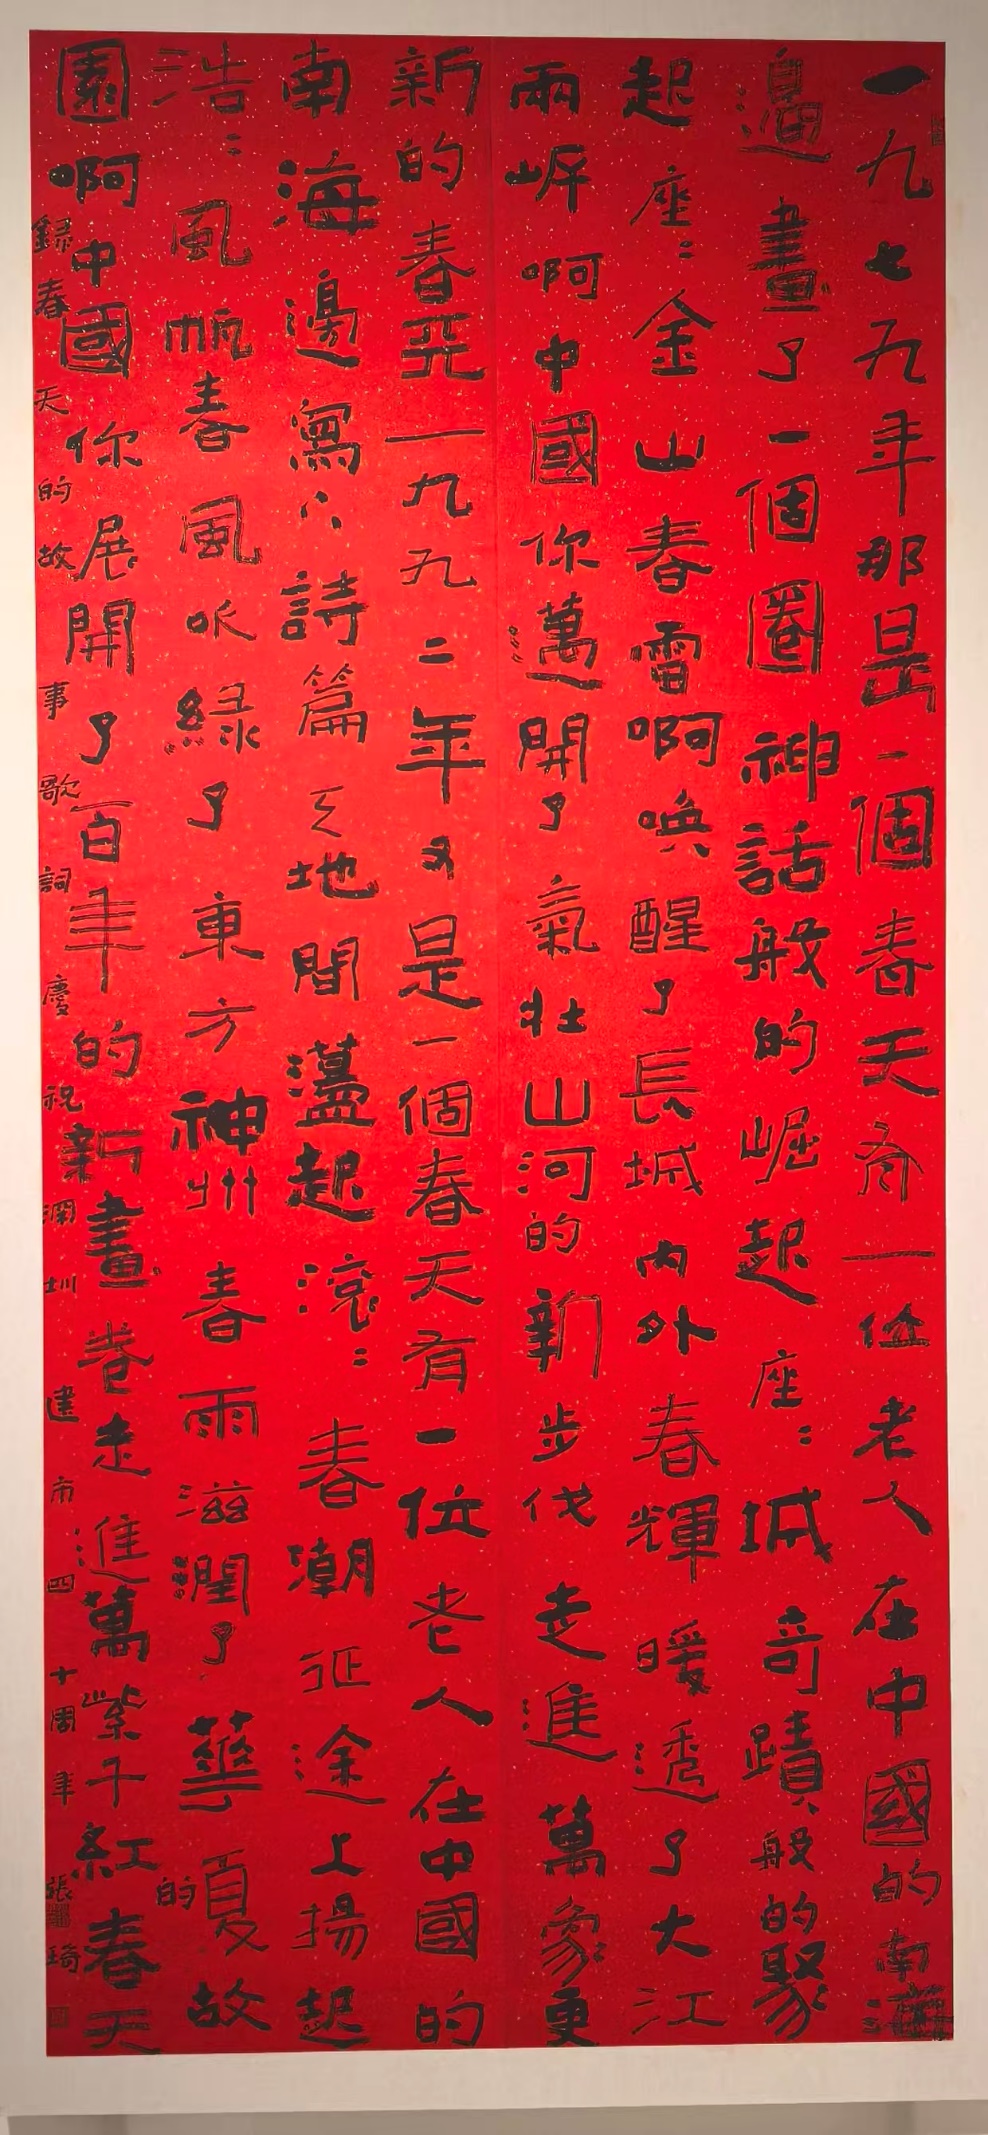 一九七九年那是一個春天有一位老人在中國的南海
邊畫了一個圈神話般的崛起座〻城奇蹟般的聚
起座〻金山春雷啊喚醒了長城内外春輝暖透了大江
兩岸啊中國你邁開了氣壯山河的新步伐走進萬象更
新的春天一九九二年又是一個春天有一位老人在中國的
南海邊寫下詩篇天地間蕩起滾〻春潮征途上揚起
浩〻風帆春風吹綠了東方神州春雨滋潤了華夏的故
園啊中國你展開了百年的新畫卷走進萬紫千紅春天
錄春天的故事歌詞慶祝深圳建市四十周年張琦